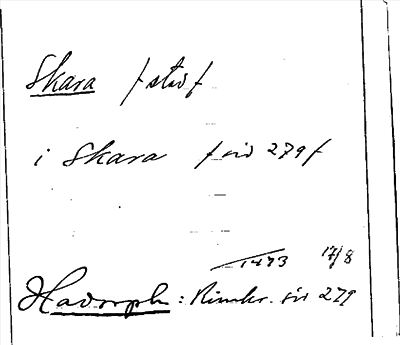 Skara /stad/
i Skara /sid 279/
1473 17/8
Hadorph: Rimkr. sid 279